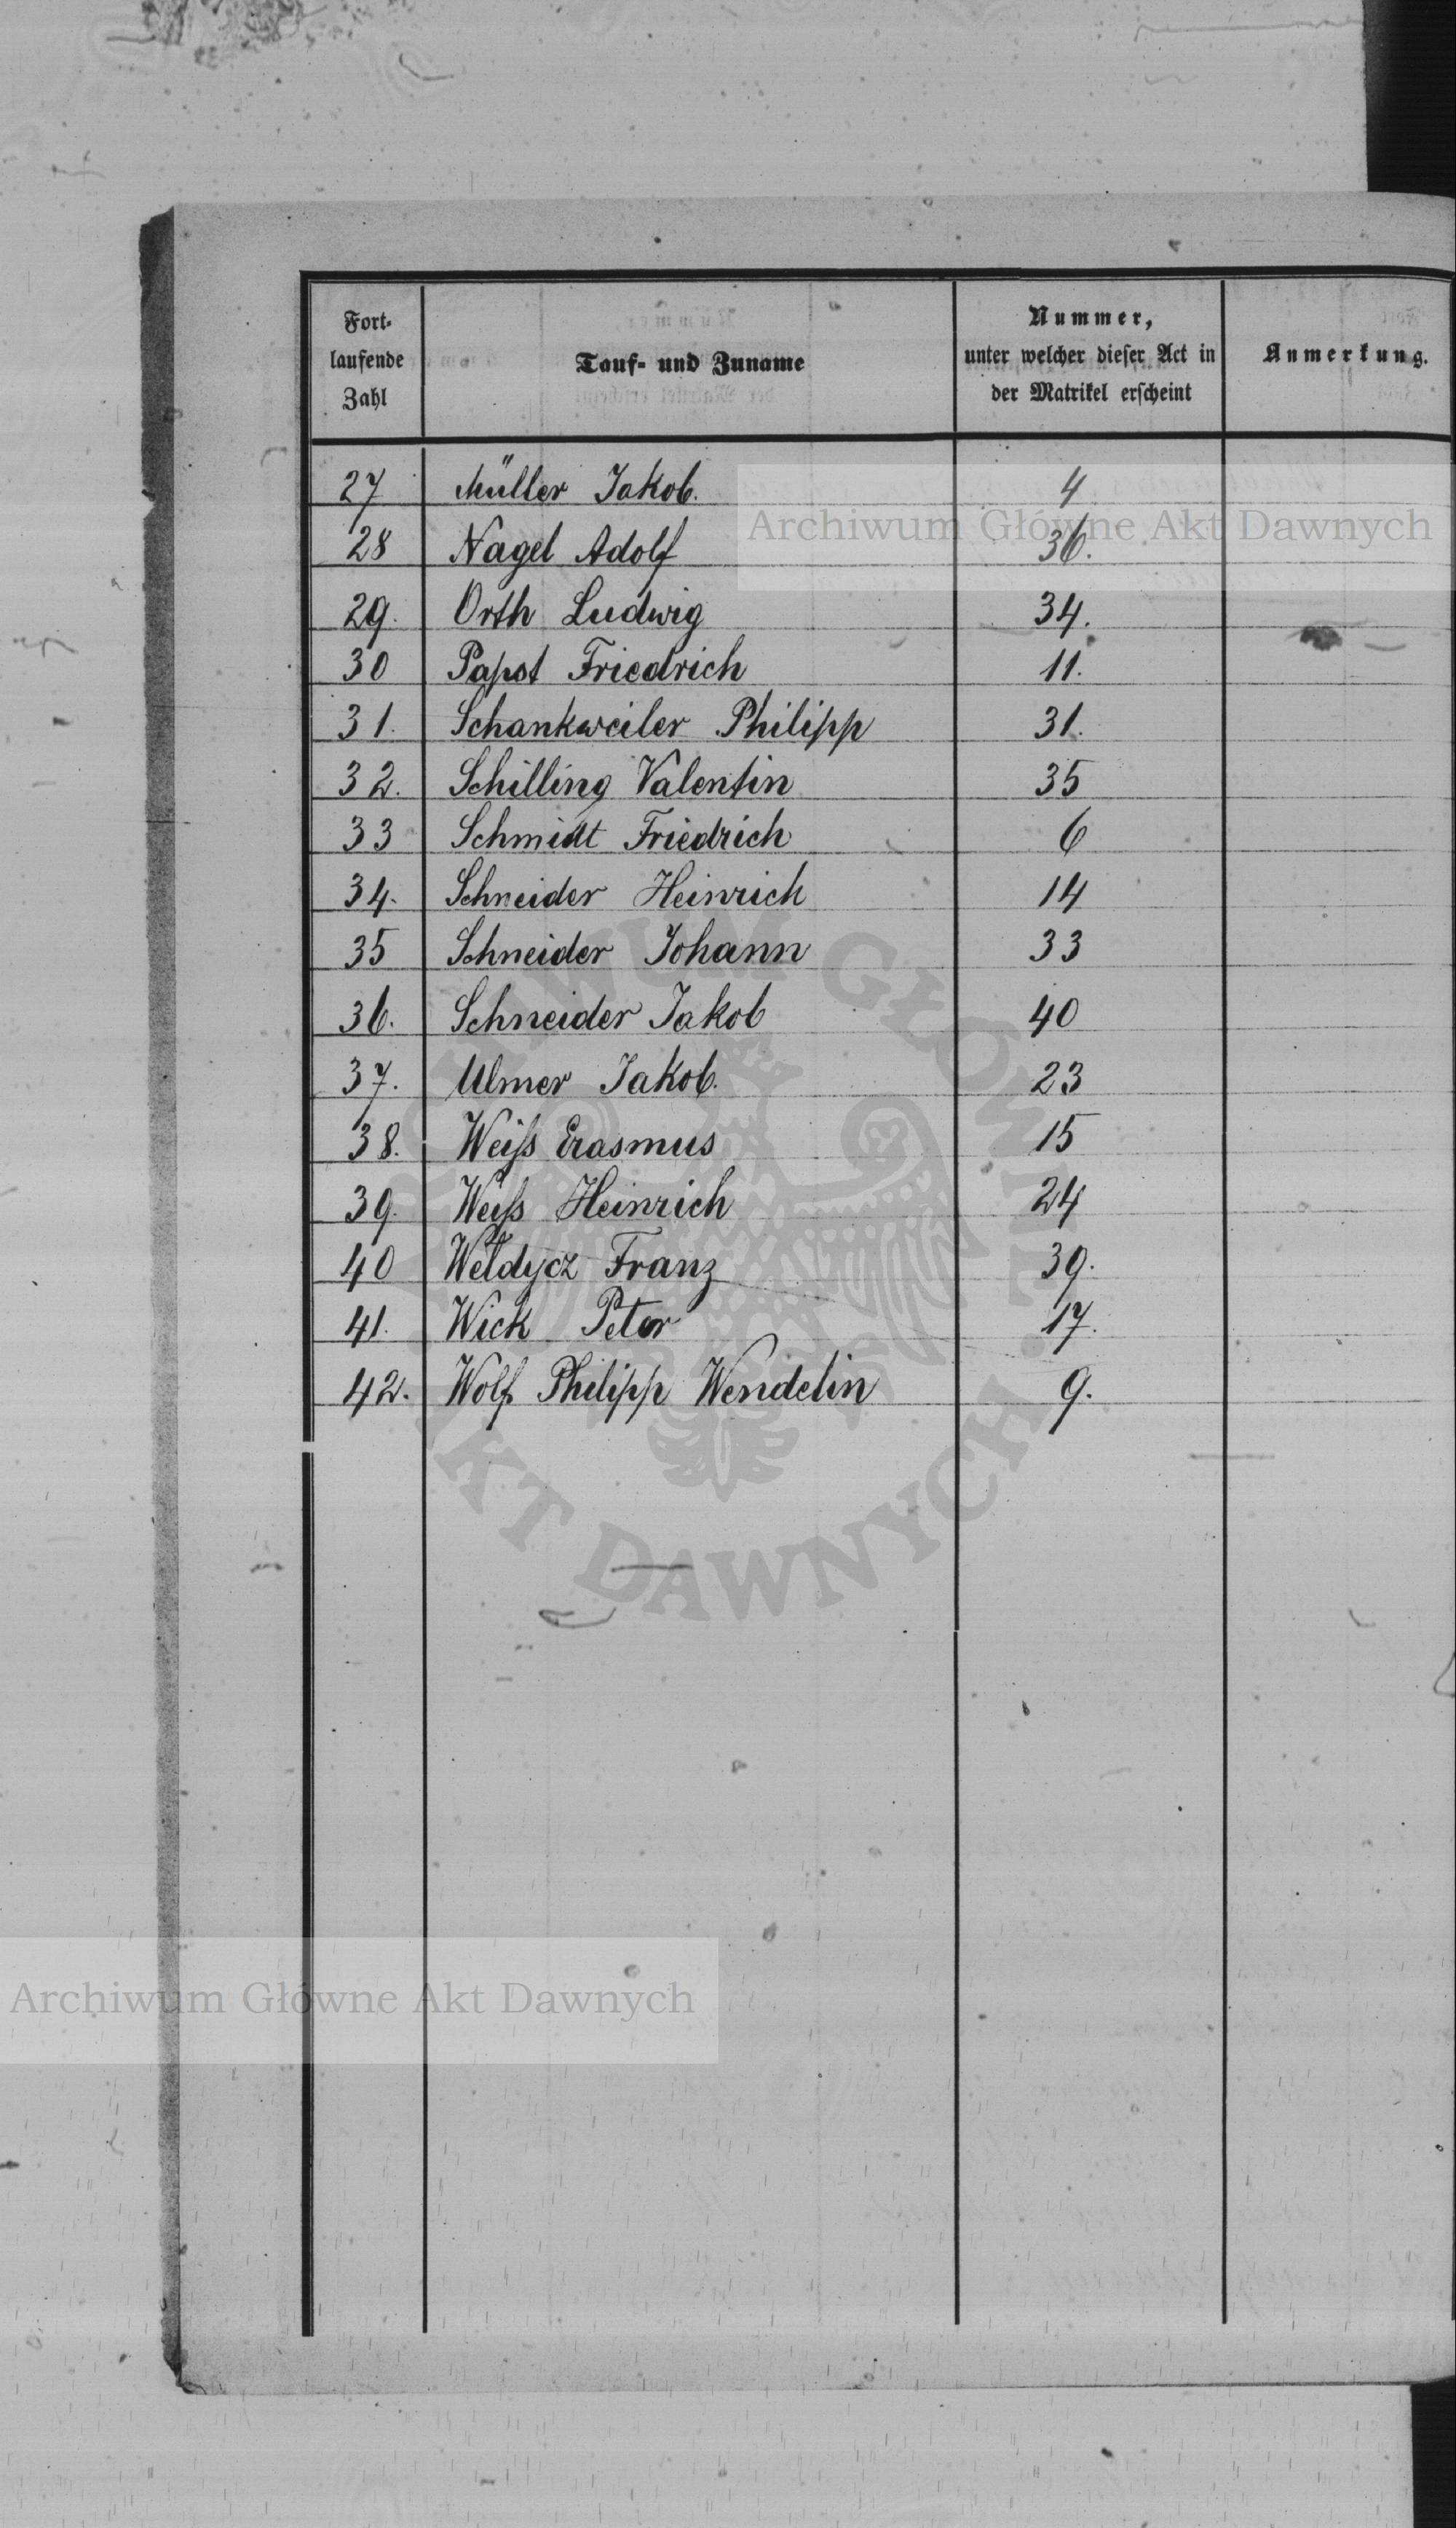 Fort-
laufende
Zahl
Tauf- und Zuname
Nummer,
unter welcher dieser Act in
der Matrikel erscheint
Anmerkung.
27 Müller Jakob. 4
28 Nagel Adolf 36.
29. Orth Ludwig 34.
30 Papst Friedrich 11.
31. Schankweiler Philipp 31.
32. Schilling Valentin 35
33 Schmidt Friedrich 6
34. Schneider Heinrich 14
35 Schneider Johann 33
36. Schneider Jakob 40
37. Ulmer Jakob. 23
38. Weiſs Erasmus 15
39. Weiſs Heinrich 24
40 Weldycz Franz 39.
41. Wick Peter 17.
42. Wolf Philipp Wendelin 9.
Archiwum Główne Akt Dawnych
ARCHIWUM GŁÓWNE AKT DAWNYCH
Archiwum Główne Akt Dawnych